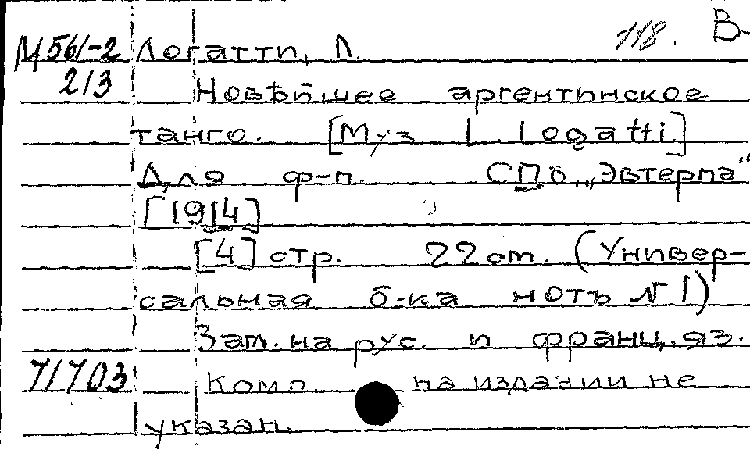 118. В-
М561-2 Логатти, Л.
213 Новѣйшее аргентинское
танго. [Муз L. Logatti]
Для ф-п. СПб „Эвтерпа"
[1914]
[4] стр. 22 см. (Универ-
сальная б-ка нотъ N 1)
Заг. на рус. и франц. яз.
71703 Комп. на издании не
указан.